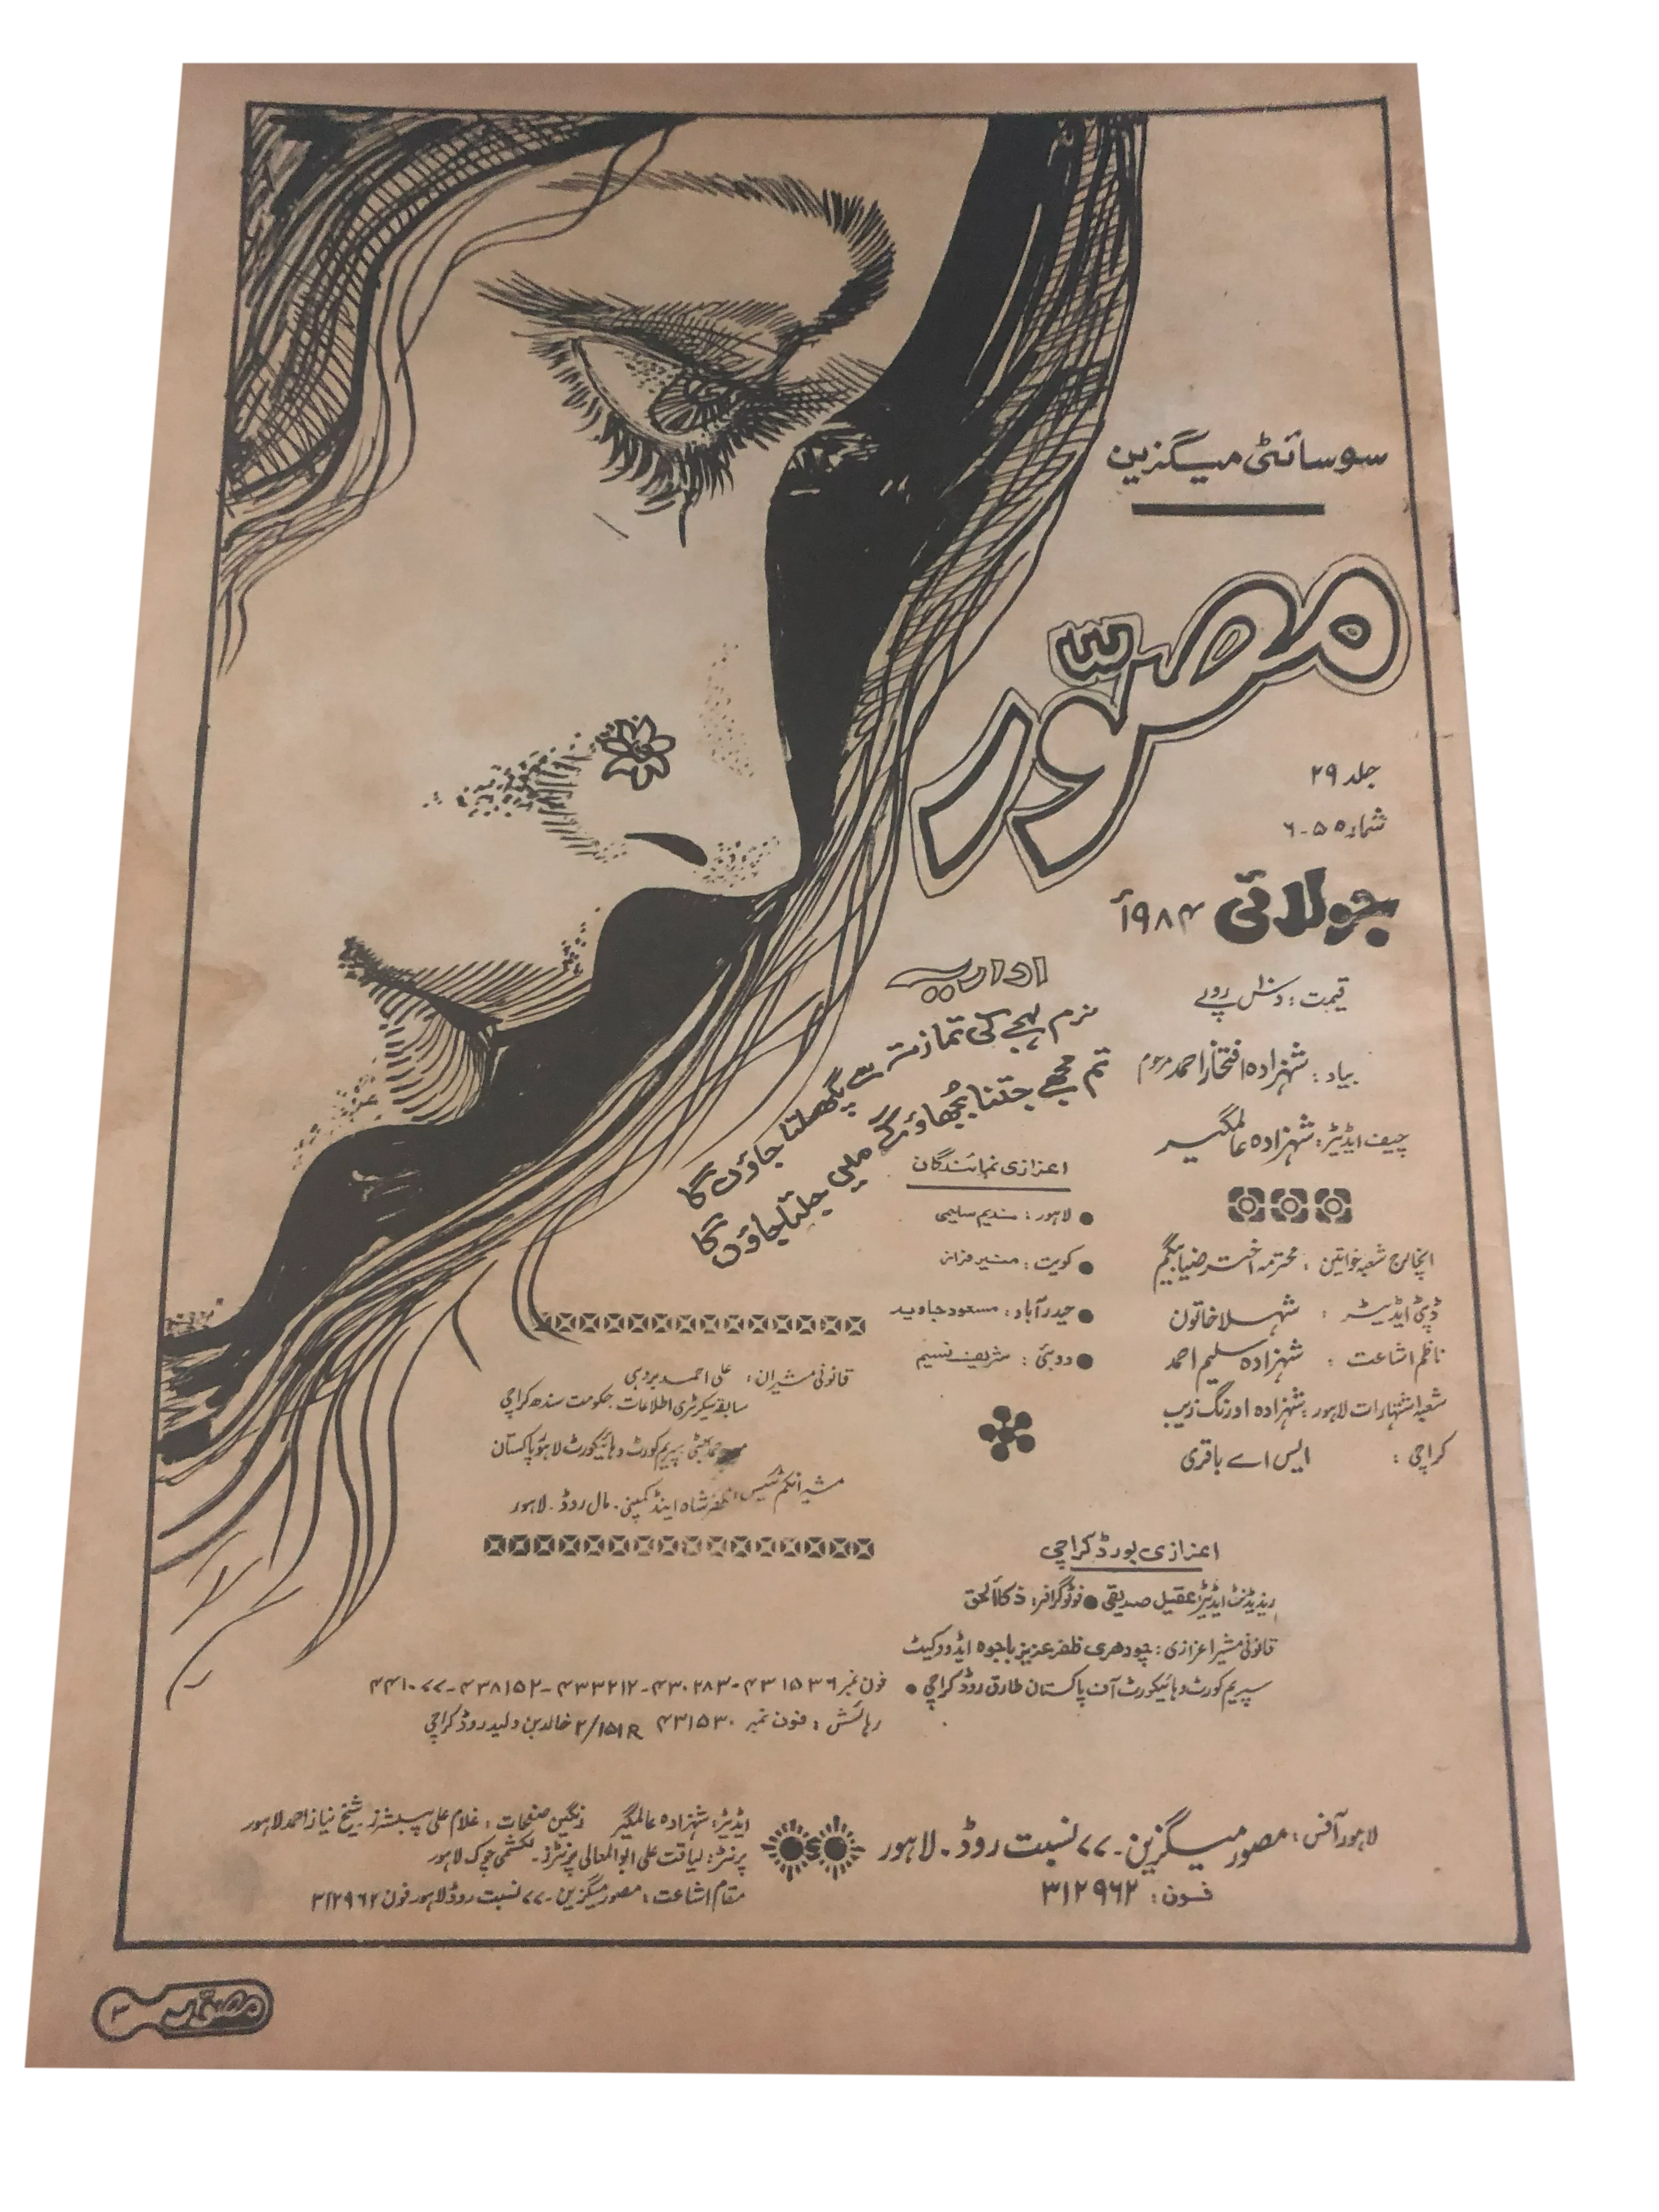 سوسائٹی میگزین
مصوّر
جلد ۲۹
شمارہ ۵-۶
جولائی ۱۹۸۴ء
قیمت: دس روپے
بیاد: شہزادہ افتخار احمد مرحوم
چیف ایڈیٹر: شہزادہ عالمگیر
انچارج شعبہ خواتین: محترمہ اختر ضیا بیگم
ڈپٹی ایڈیٹر: شہلا خاتون
ناظم اشاعت: شہزادہ سلیم احمد
شعبہ اشتہارات لاہور: شہزادہ اورنگ زیب
کراچی: ایس اے باقری
اداریہ
نرم لہجے کی تمازت سے پگھلتا جاؤں گا
تم مجھے جتنا بجھاؤ گے میں جلتا جاؤں گا
اعزازی نمائندگان
● لاہور: ندیم سلیمی
● کویت: منیر فراز
● حیدرآباد: مسعود جاوید
● دوبئی: شریف نسیم
قانونی مشیران: علی احمد بروہی
سابقہ سیکرٹری اطلاعات حکومت سندھ کراچی
سپریم کورٹ و ہائیکورٹ لاہور پاکستان
مشیر انکم ٹیکس: ظفر شاہ اینڈ کمپنی۔ مال روڈ۔ لاہور
اعزازی بورڈ کراچی
ریذیڈنٹ ایڈیٹر عقیل صدیقی ● فوٹوگرافر: ذکاالحق
قانونی مشیر اعزازی: چودھری ظفر عزیز باجوہ ایڈووکیٹ
سپریم کورٹ و ہائیکورٹ آف پاکستان طارق روڈ کراچی ●
فون نمبر ۴۳۱۵۳۶-۴۳۰۲۸۳-۴۳۳۲۱۲-۴۳۸۱۵۲-۴۴۱۰۷۷
رہائش: فون نمبر ۴۳۱۵۳۰ ۲/۱۵۱R خالد بن ولید روڈ کراچی
لاہور آفس: مصور میگزین۔ ۷۷ نسبت روڈ۔ لاہور
فون: ۳۱۲۹۶۲
ایڈیٹر: شہزادہ عالمگیر رنگین صفحات: غلام علی پبلشرز۔ شیخ نیاز احمد لاہور
پرنٹر: لیاقت علی ابوالمعالی پرنٹرز۔ لکشمی چوک لاہور
مقام اشاعت: مصور میگزین۔ ۷۷ نسبت روڈ لاہور فون ۳۱۲۹۶۲
مصوّر ۳